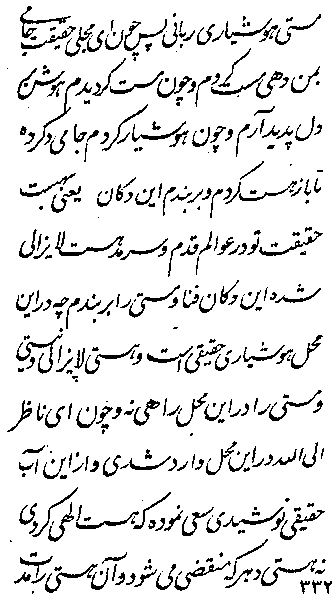 مستی هوشیاری ربّانی پس چون ای مجلی حقیقت جامی
بمن دهی مست گردم و چون مست گردیدم هوش
دل پدید آرم و چون هوشیار کردم جامی دکر ده
تا باز مست کردم و بربندم این دکان یعنی بهست
حقیقت تو در عوالم قدم و سرمد هست لایزالی
شده این دکان فنا و مستی را بر بندم چه در این
محل هوشیاری حقیقی است و هستی لایزالی و نیستی
و مستی را در این محل راهی نه و چون ای ناظر
الی الله در این محل وارد شدی و از این آب
حقیقی نوشیدی سعی نموده که هست الهی کردی
نه هستی دهر که منقضی می شود و آن هستی را مدت
۳۳۲